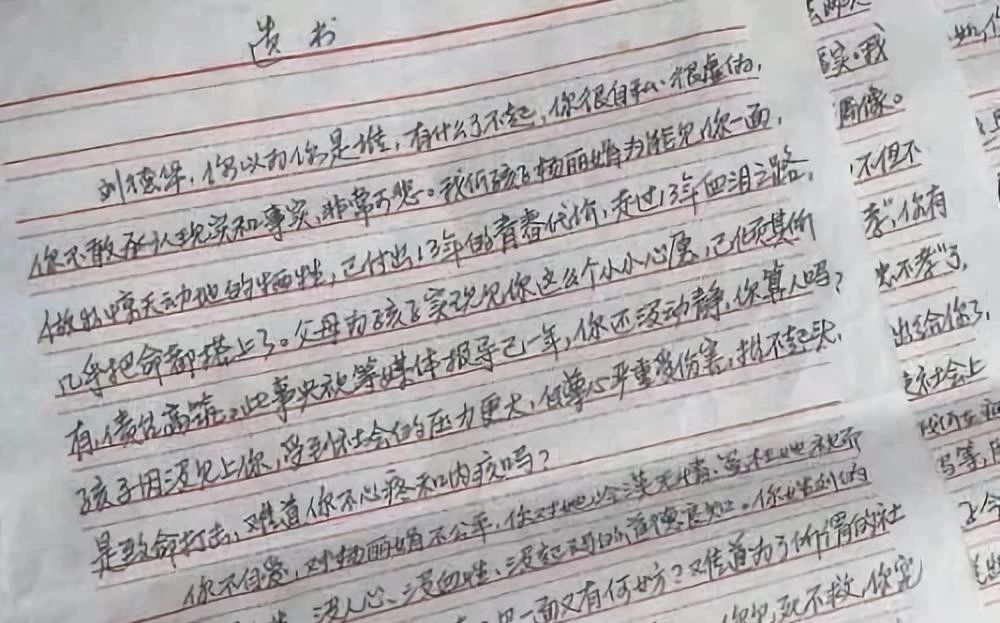 遗书
刘德华，你以为你是谁，有什么了不起，你很自私、很虚伪，
你不敢承认现实和事实，非常可悲。我们孩子杨丽娟为能见你一面，
做出惊天动地的牺牲，已付出13年的青春代价，走过13年血泪之路，
几乎把命都搭上了。父母为孩子实现见你这么个小小心愿，已倾其所
有，债台高筑，此事央视等媒体报导已一年，你还没动静，你算人吗？
孩子因没见上你，受到社会的压力更大，自尊心严重受伤害，抬不起头，
是致命打击，难道你不心疼和内疚吗？
你不自爱，对杨丽娟不公平，你对她冷漠无情
没人心、没血性、没起码的道德良知。你
见一面又有何妨？难道为了所谓的社
你见死不救，你究
实。我
偶像。
不但不
孝"，你有
出不孝了，
出给你了，
社会上